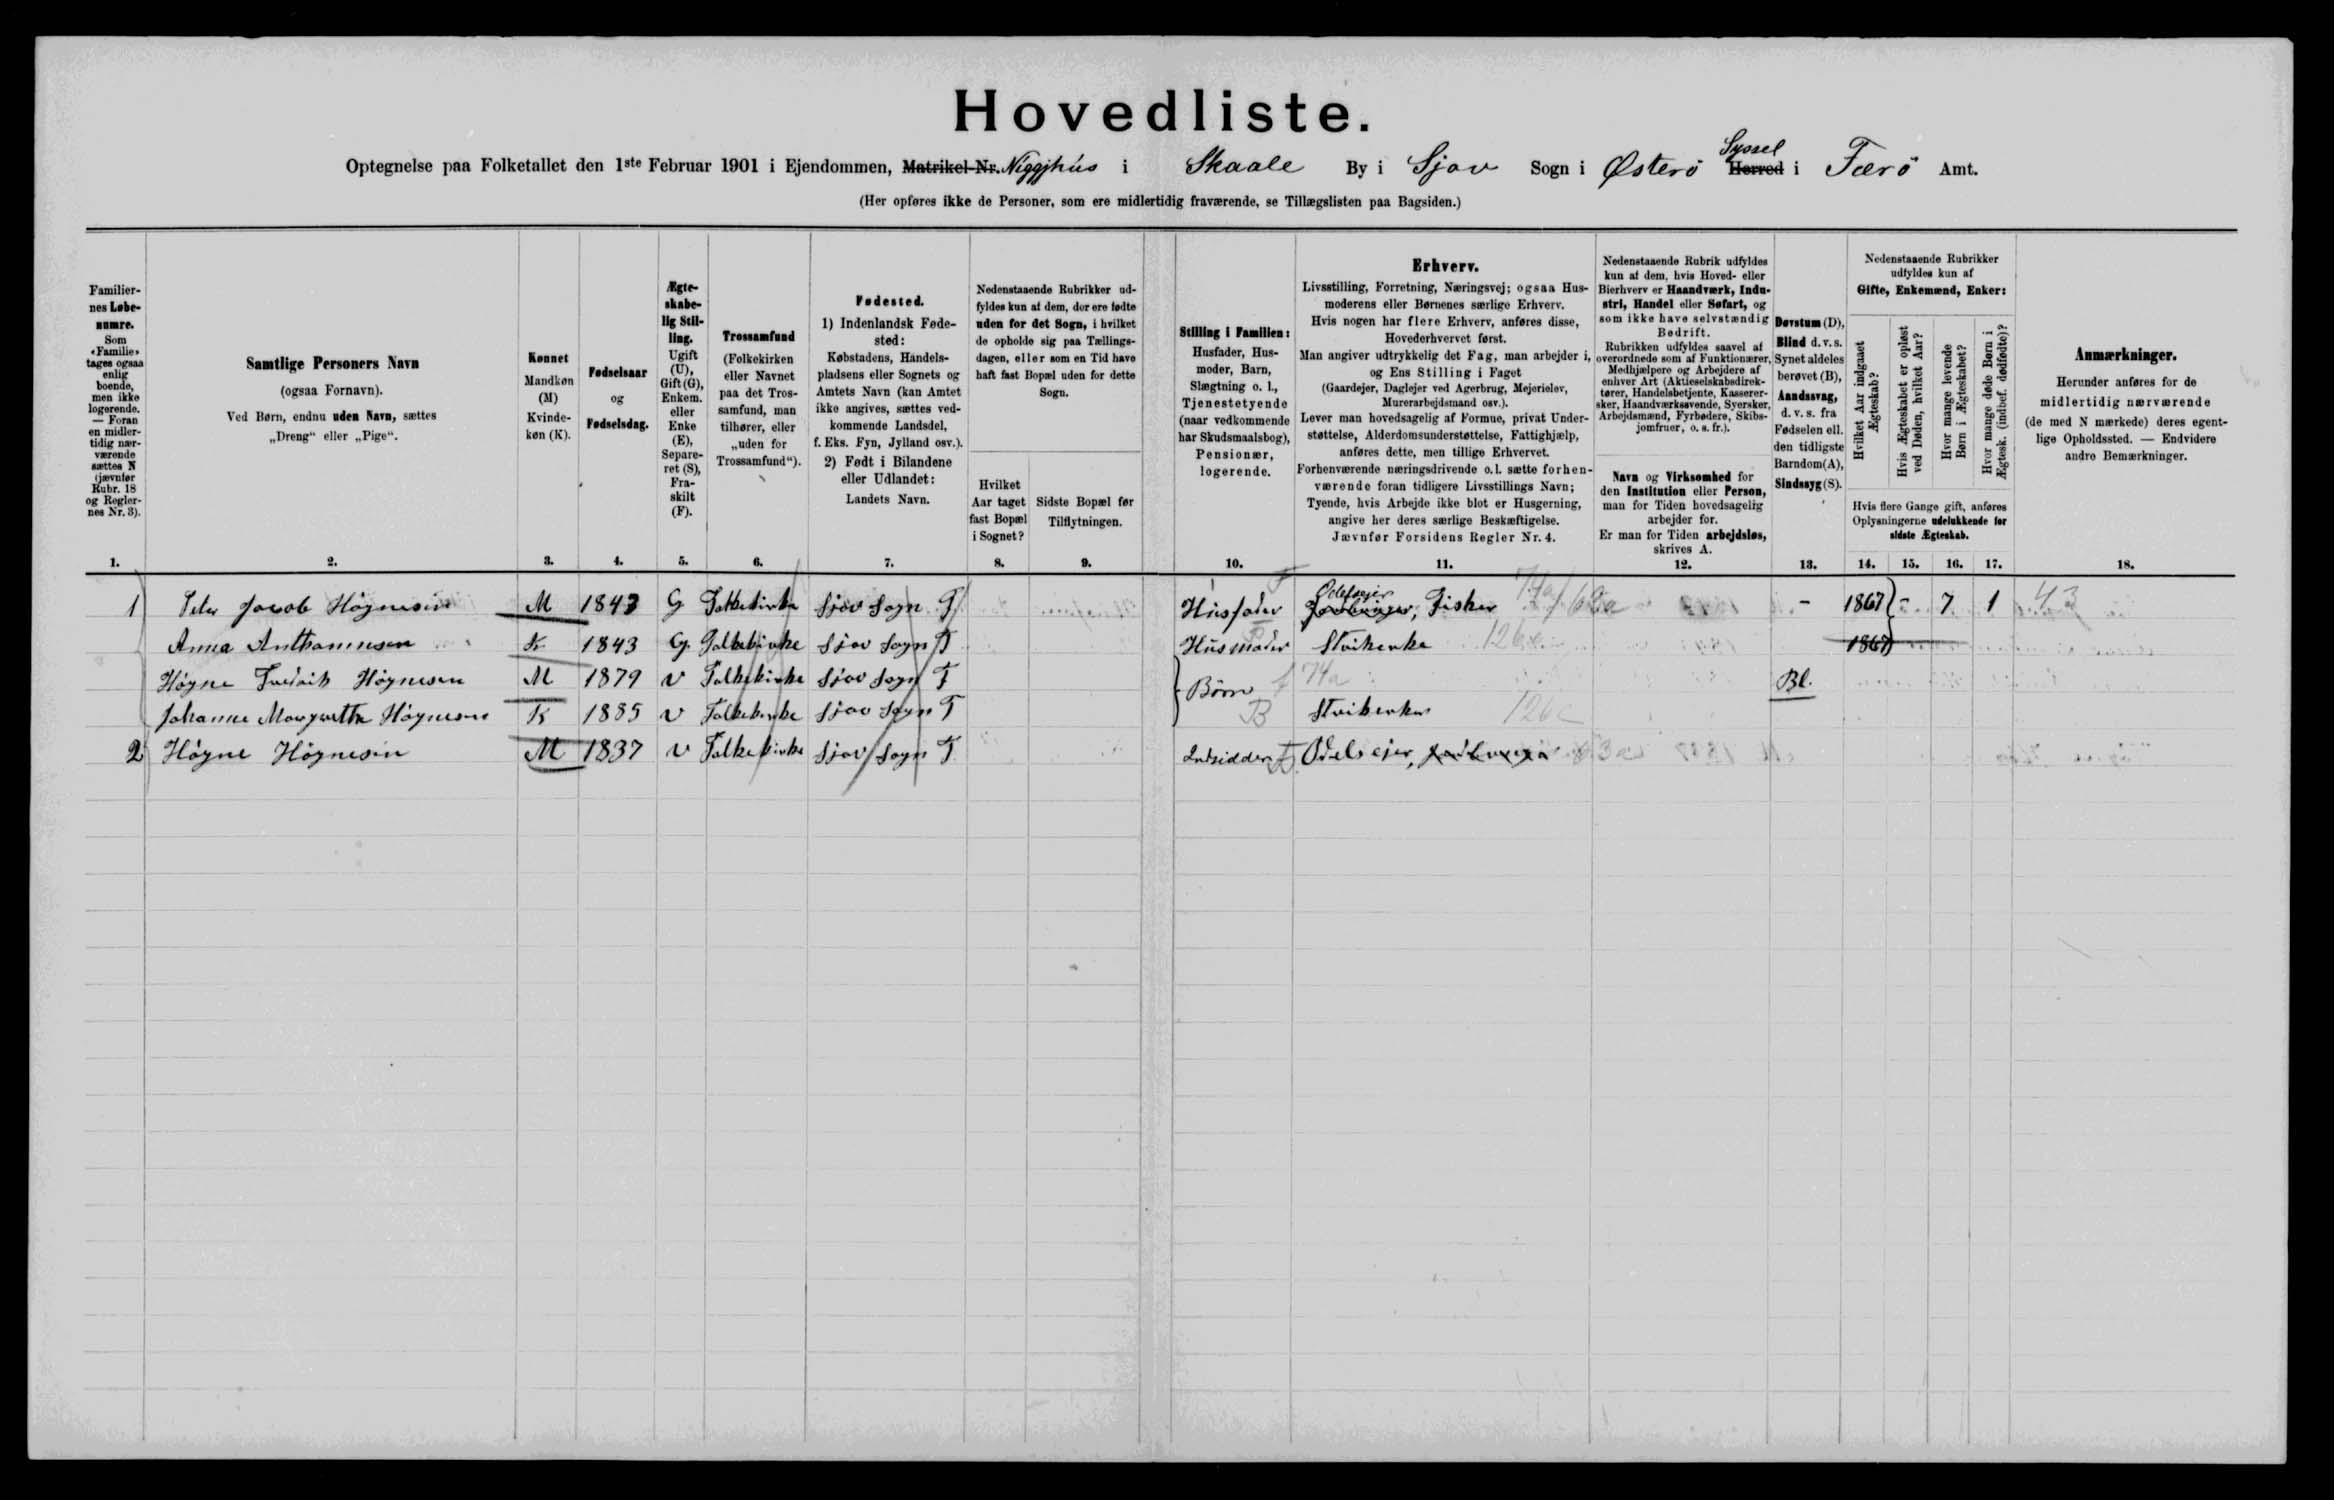 Hovedliste.
Syssel
Optegnelse paa Folketallet den 1ste Februar 1901 i Ejendommen, Matrikel-Nr. Niggjhús i Skaale By i Sjov Sogn i Østerö Herred i Færö Amt.
(Her opføres ikke de Personer, som ere midlertidig fraværende, se Tillægslisten paa Bagsiden.)
Familiernes Løbenumre. Som «Familie» tages ogsaa enlig boende, men ikke logerende. — Foran en midlertidig nærværende sættes N (jævnfør Rubr. 18 og Reglernes Nr. 3).
Samtlige Personers Navn
(ogsaa Fornavn).
Ved Børn, endnu uden Navn, sættes
„Dreng“ eller „Pige“.
Kønnet
Mandkøn (M)
Kvindekøn (K).
Fødselsaar
og
Fødselsdag.
Ægteskabelig Stilling. Ugift (U), Gift (G), Enkem. eller Enke (E), Separeret (S), Fraskilt (F).
Trossamfund
(Folkekirken eller Navnet paa det Trossamfund, man tilhører, eller „uden for Trossamfund“).
Fødested.
1) Indenlandsk Fødested:
Købstadens, Handelspladsens eller Sognets og Amtets Navn (kan Amtet ikke angives, sættes vedkommende Landsdel, f. Eks. Fyn, Jylland osv.).
2) Født i Bilandene eller Udlandet:
Landets Navn.
Nedenstaaende Rubrikker udfyldes kun af dem, der ere fødte uden for det Sogn, i hvilket de opholde sig paa Tællingsdagen, eller som en Tid have haft fast Bopæl uden for dette Sogn.
Hvilket Aar taget fast Bopæl i Sognet?
Sidste Bopæl før Tilflytningen.
Stilling i Familien:
Husfader, Husmoder, Barn, Slægtning o. l., Tjenestetyende (naar vedkommende har Skudsmaalsbog), Pensionær, logerende.
Erhverv.
Livsstilling, Forretning, Næringsvej; ogsaa Husmoderens eller Børnenes særlige Erhverv.
Hvis nogen har flere Erhverv, anføres disse, Hovederhvervet først.
Man angiver udtrykkelig det Fag, man arbejder i, og Ens Stilling i Faget
(Gaardejer, Daglejer ved Agerbrug, Mejerielev, Murerarbejdsmand osv.).
Lever man hovedsagelig af Formue, privat Understøttelse, Alderdomsunderstøttelse, Fattighjælp, anføres dette, men tillige Erhvervet.
Forhenværende næringsdrivende o.l. sætte forhenværende foran tidligere Livsstillings Navn;
Tyende, hvis Arbejde ikke blot er Husgerning, angive her deres særlige Beskæftigelse.
Jævnfør Forsidens Regler Nr. 4.
Nedenstaaende Rubrik udfyldes kun af dem, hvis Hoved- eller Bierhverv er Haandværk, Industri, Handel eller Søfart, og som ikke have selvstændig Bedrift.
Rubrikken udfyldes saavel af overordnede som af Funktionærer, Medhjælpere og Arbejdere af enhver Art (Aktieselskabsdirektører, Handelsbetjente, Kasserersker, Haandværkssvende, Syersker, Arbejdsmænd, Fyrbødere, Skibsjomfruer, o. s. fr.).
Navn og Virksomhed for den Institution eller Person, man for Tiden hovedsagelig arbejder for.
Er man for Tiden arbejdsløs, skrives A.
Døvstum (D), Blind d. v. s. Synet aldeles berøvet (B), Aandssvag, d. v. s. fra Fødselen ell. den tidligste Barndom (A), Sindssyg (S).
Nedenstaaende Rubrikker udfyldes kun af
Gifte, Enkemænd, Enker:
Hvilket Aar indgaaet Ægteskab?
Hvis Ægteskabet er opløst ved Døden, hvilket Aar?
Hvor mange levende Børn i Ægteskabet?
Hvor mange døde Børn i Ægtesk. (indbef. dødfødte)?
Hvis flere Gange gift, anføres Oplysningerne udelukkende for sidste Ægteskab.
Anmærkninger.
Herunder anføres for de midlertidig nærværende (de med N mærkede) deres egentlige Opholdssted. — Endvidere andre Bemærkninger.
1. 2. 3. 4. 5. 6. 7. 8. 9. 10. 11. 12. 13. 14. 15. 16. 17. 18.
1 Peter Jacob Högnesen M 1843 G Folkekirke Sjov Sogn F Húsfader Odelsejer, Fisker 74a/63a - 1867 - 7 1 43
Anna Anthoniusen K 1843 G Folkekirke Sjov Sogn F Húsmoder Strikerke 126c 1867
Högne Fredrik Högnesen M 1879 U Folkekirke Sjov Sogn F Börn f 74a Bl.
Johanne Margrethe Högnesen K 1885 U Folkekirke Sjov Sogn F B Strikerke 126c
2 Högne Högnesen M 1837 U Folkekirke Sjov Sogn F Indsidder F Odelsejer, 63a